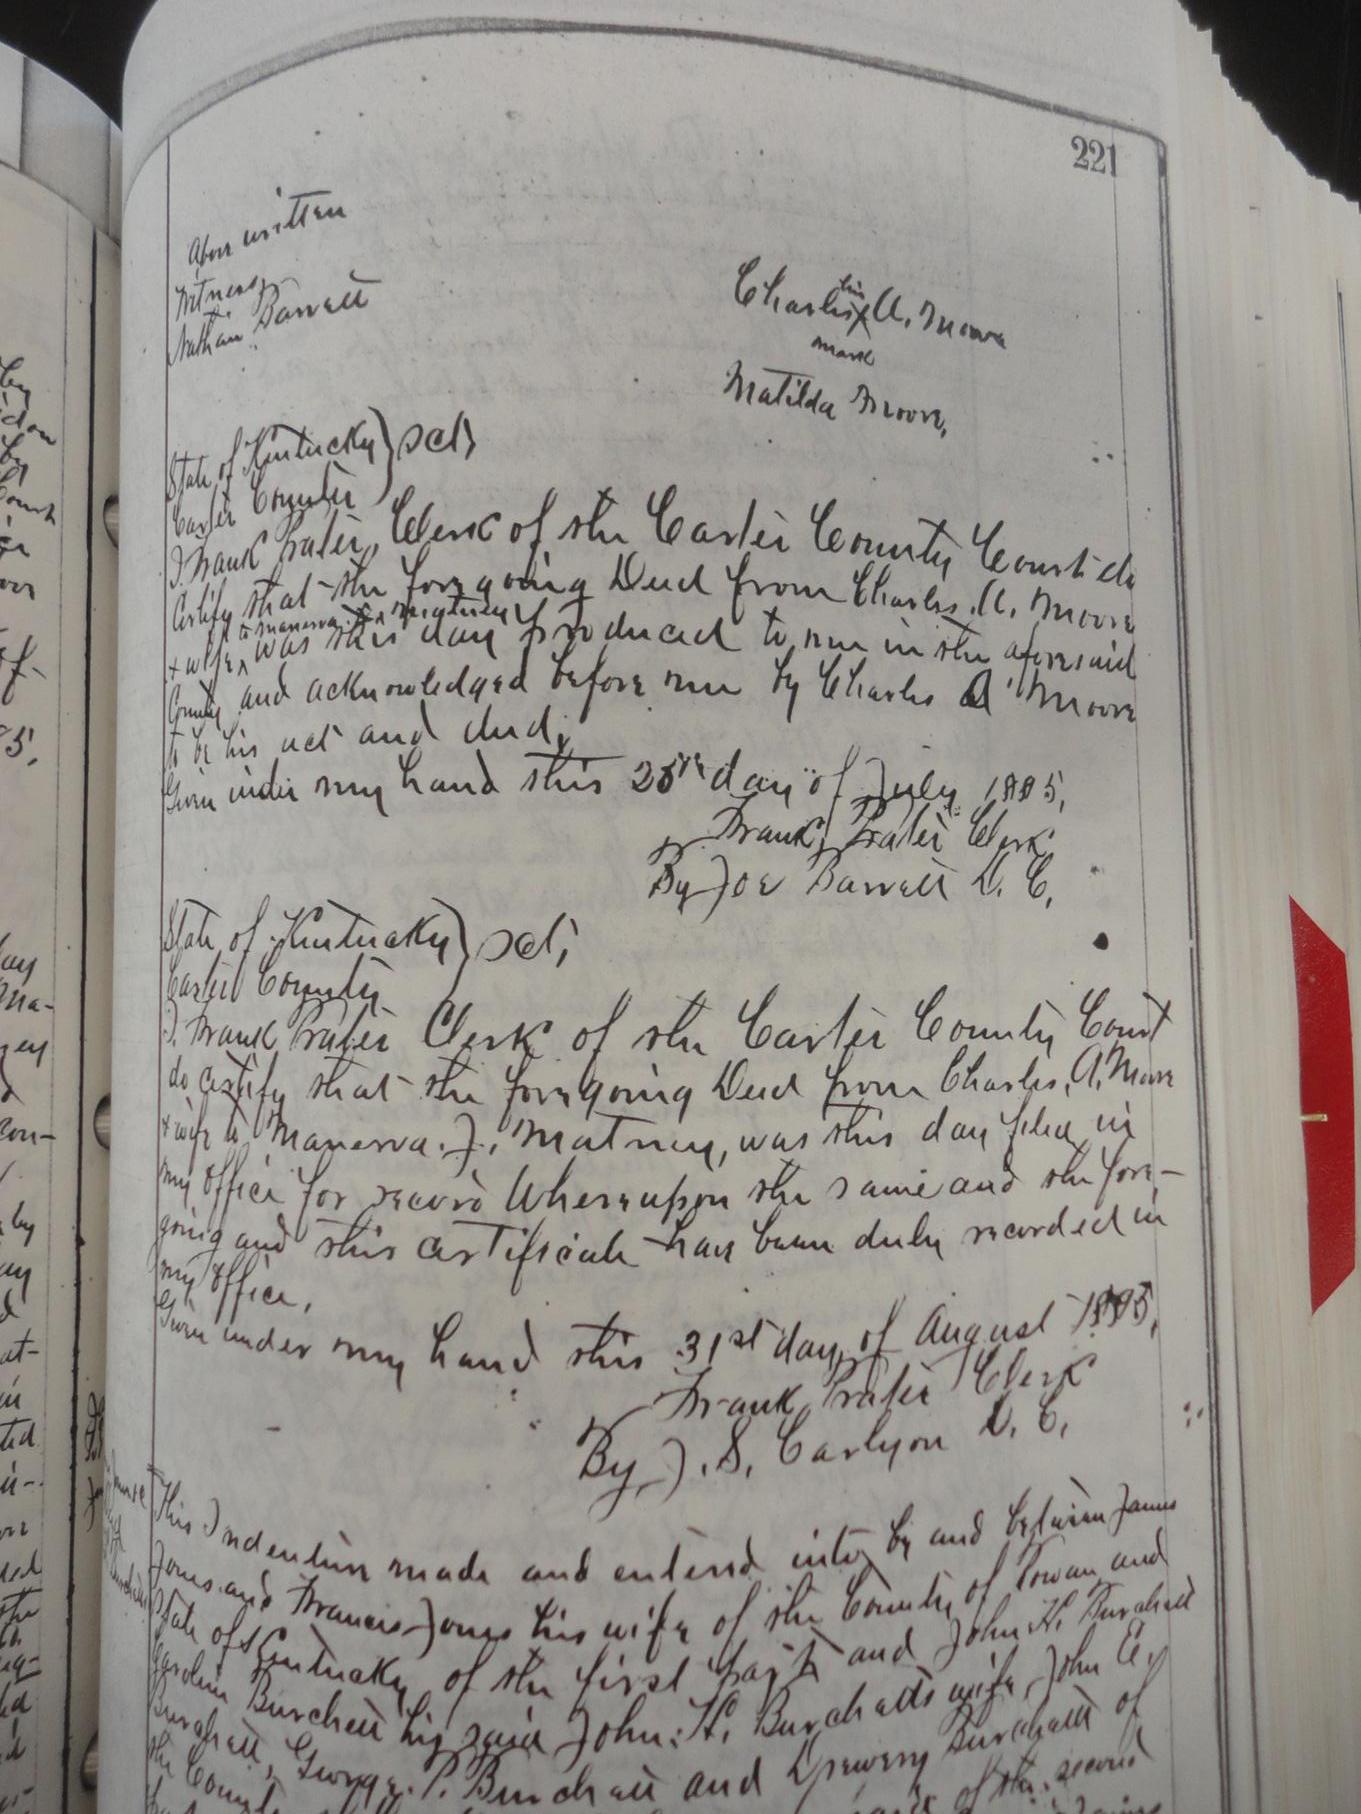 221
Above written
Witness
Nathan Barrett
his
Charles X A. Moore
mark
Matilda Moore,
State of Kentucky } sct;
Carter County
I Frank Prater, Clerk of the Carter County Court do
Certify that the foregoing Deed from Charles A. Moore
to Manerva J. Matney
+ wife ^ was this day produced to me in the aforesaid
County and acknowledged before me by Charles A Moore
to be his act and deed,
Given under my hand this 25th day of July 1895,
Frank Prater Clerk
By Joe Barrett D. C.
State of Kentucky } sct;
Carter County
I. Frank Prater Clerk of the Carter County Court
do certify that the foregoing Deed from Charles, A. Moore
+ wife to Manerva. J. Matney, was this day filed in
my office for record Whereupon the same and the fore-
going and this certificate has been duly recorded in
my office.
Given under my hand this 31st day of August 1895,
Frank Prater Clerk
By J. S. Carlyon D. C.
This Indenture made and entered into by and between James
Jones and Francis Jones his wife of the County of Rowan and
State of Kentucky of the first part and John H. Burchett
Burchett his said John. H. Burchetts wife, John A.
Burchett, George. P. Burchett and Drewery Burchett of
the County of the second